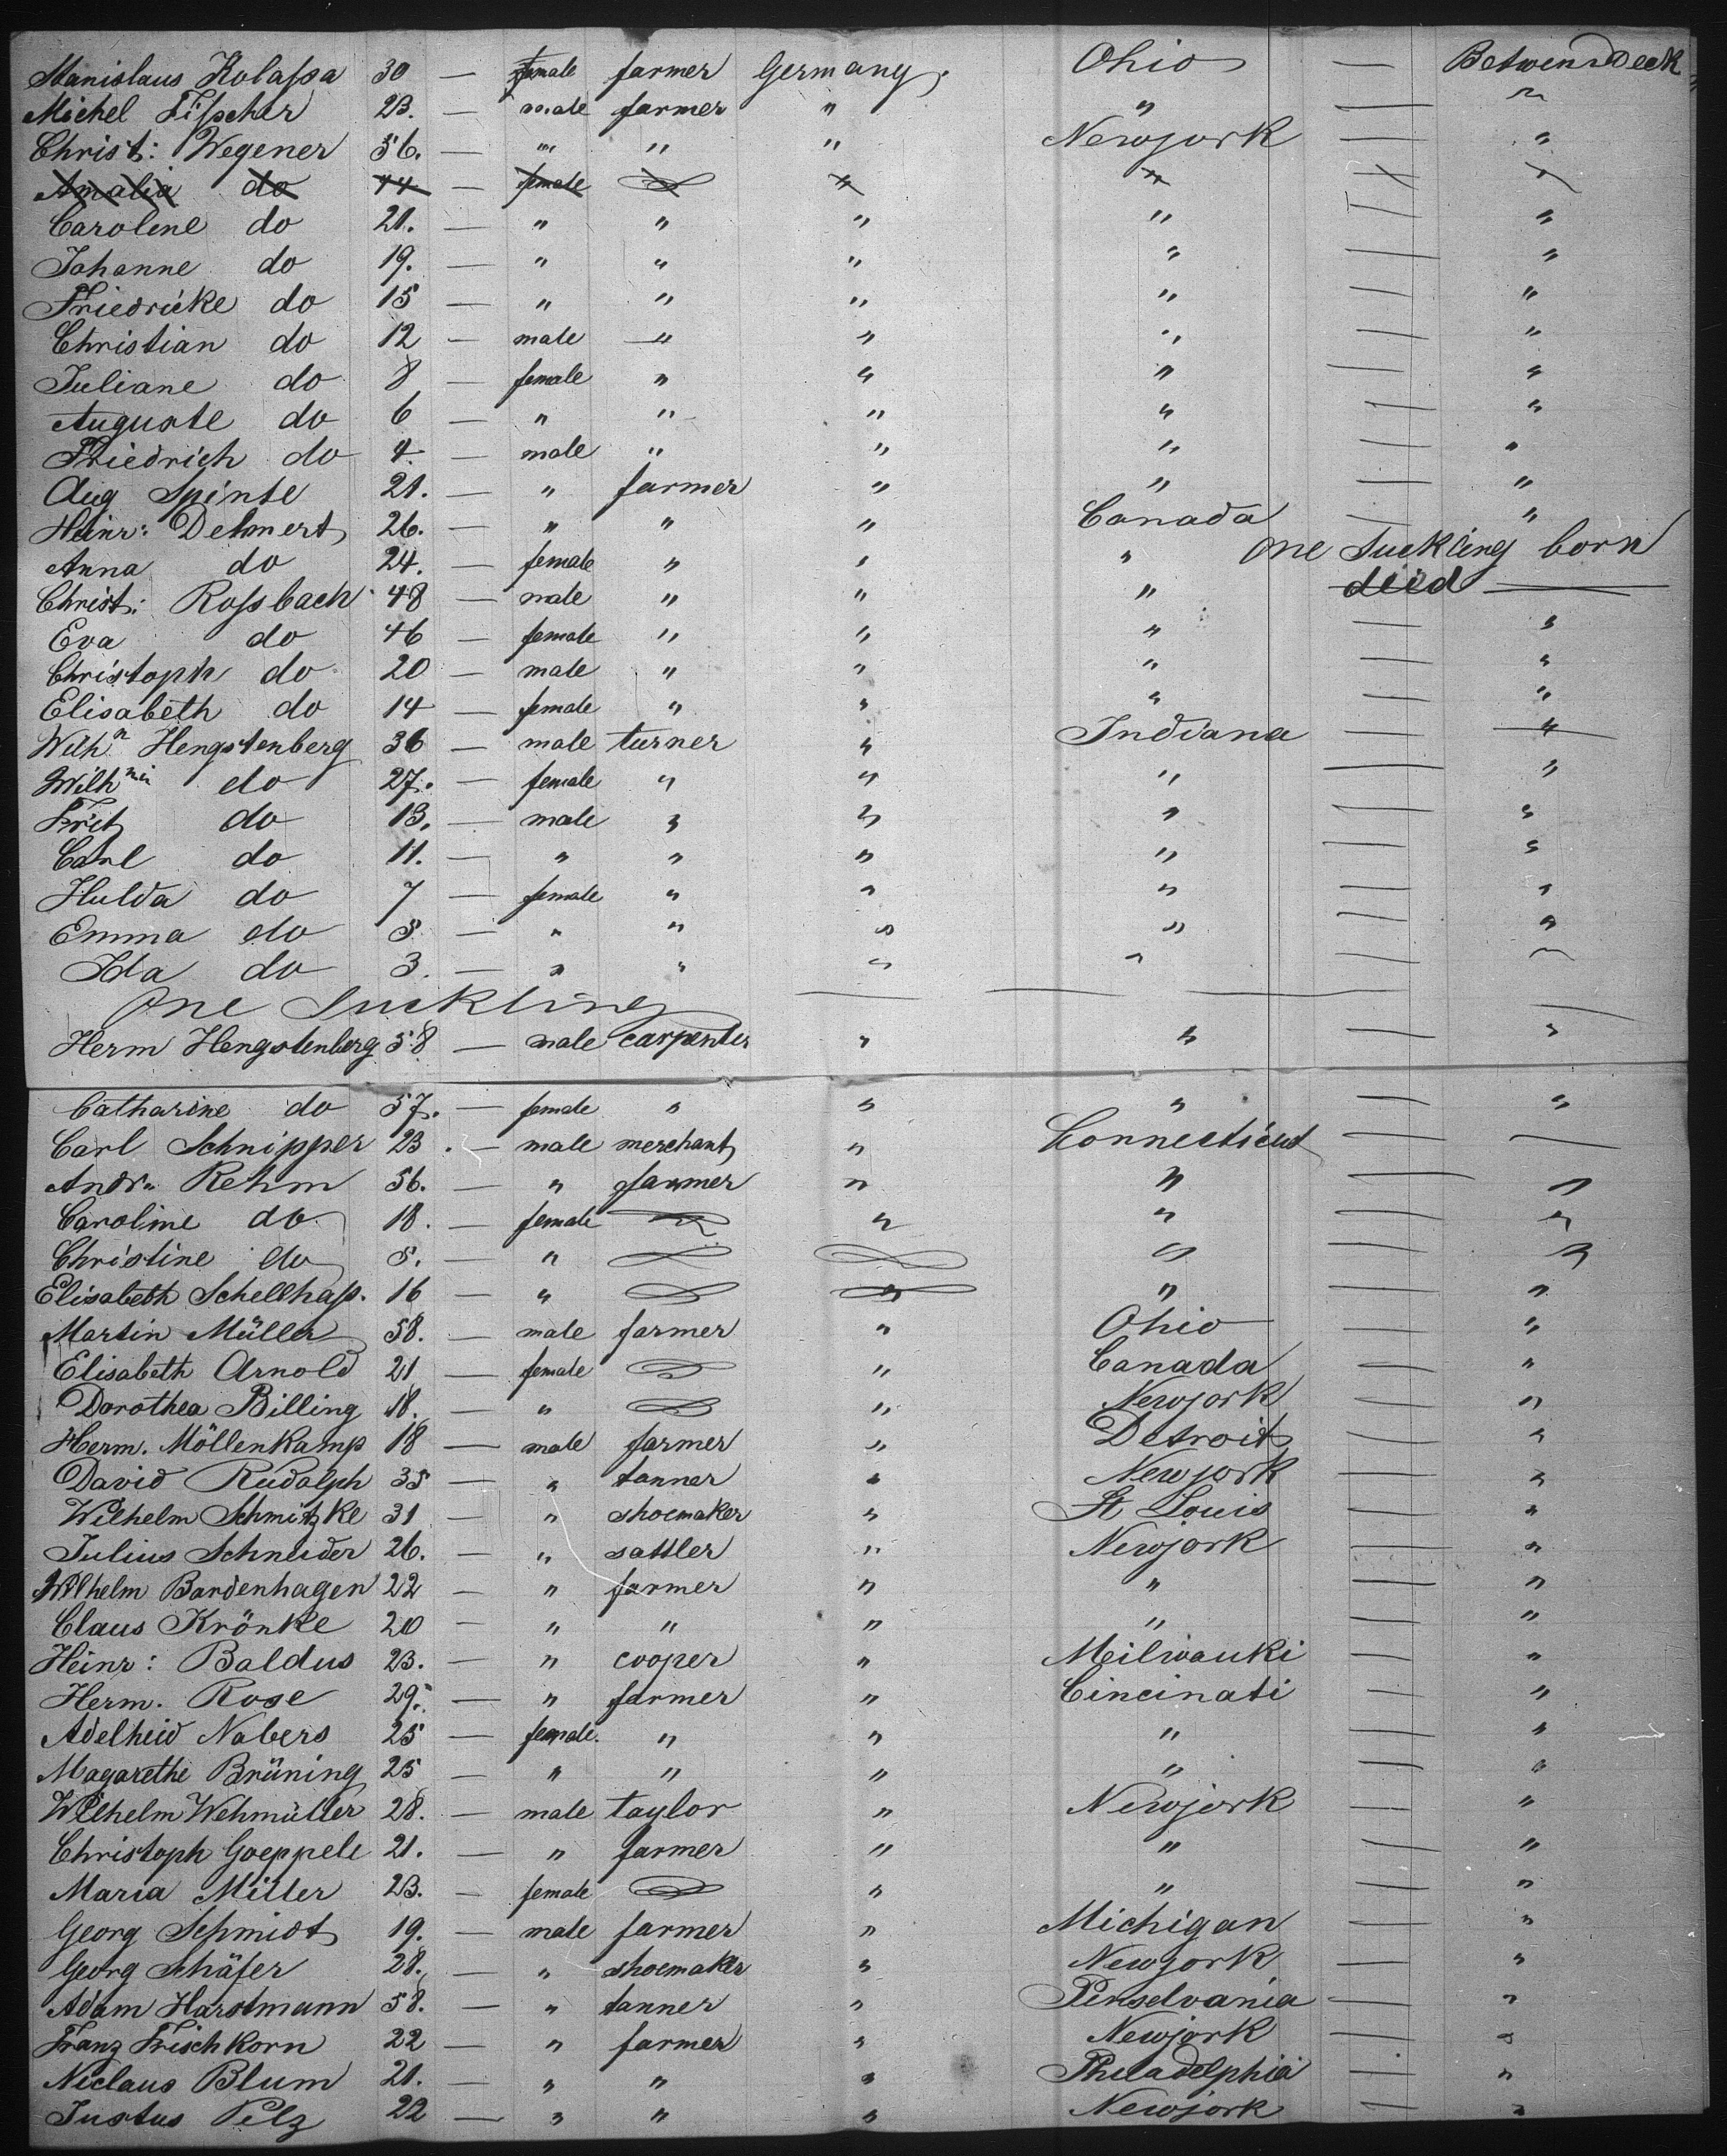 Stanislaus Kolassa 30 — female farmer Germany. Ohio — Betwen Deck
Michel Fisscher 23. — male farmer " " — "
Christ: Wegener 56. — " " " Newjork — "
Amalia do 44 — female " " — "
Carolene do 21. — " " " " — "
Johanne do 19. — " " " " — "
Friedricke do 15 — " " " " — "
Christian do 12 — male " " " — "
Juliane do 8 — female " " " — "
Auguste do 6 — " " " " — "
Friedrich do 4. — male " " " — "
Aug Spinte 21. — " farmer " " — "
Heinr: Dehmert 26. — " " " Canada — "
Anna do 24. — female " " " one Suckling born
Christ: Rossbach 48 — male " " " deid —
Eva do 46 — female " " " — "
Christoph do 20 — male " " " — "
Elisabeth do 14 — female " " " — "
Wilhm Hengstenberg 36 — male turner " Indiana — "
Wilhmi do 27. — female " " " — "
Fritz do 13. — male " " " — "
Carl do 11. — " " " " — "
Hulda do 7 — female " " " — "
Emma do 5 — " " " " — "
Ida do 3. — " " " " — "
one Suckling — — — —
Herm Hengstenberg 58 — male carpenter " " — "
Catharine do 57. — female " " " — "
Carl Schnipper 23. — male merchant " Connecticut — —
Andr. Rehm 56. — " farmer " " — "
Caroline do 18. — female " " — "
Christine do 5. — " " — "
Elisabeth Schellhass. 16 — " " " — "
Martin Müller 58. — male farmer " Ohio — "
Elisabeth Arnold 21 — female " Canada — "
Dorothea Billing 18. — " " Newjork — "
Herm. Möllenkamp 18 — male farmer " Detroit — "
David Rudolph 35 — " tanner " Newjork — "
Wilhelm Schmitzke 31 — " shoemaker " St Louis — "
Julius Schneider 26. — " sattler " Newjork — "
Wilhelm Bardenhagen 22 — " farmer " " — "
Claus Krönke 20 — " " " " — "
Heinr: Baldus 23. — " cooper " Milwauki — "
Herm. Rose 29. — " farmer " Cincinati — "
Adelheid Nabers 25 — female. " " " — "
Magarethe Brüning 25 — " " " " — "
Wilhelm Wehmüller 28. — male taylor " Newjork — "
Christoph Goeppele 21. — " farmer " " — "
Maria Miller 23. — female " " — "
Georg Schmidt 19. — male farmer " Michigan — "
Georg Schäfer 28. — " shoemaker " Newjork — "
Adam Harstmann 58. — " tanner " Penselvania — "
Franz Frischkorn 22 — " farmer " Newjork — "
Niclaus Blum 21. — " " " Philadelphia — "
Justus Pelz 22 — " " " Newjork — "